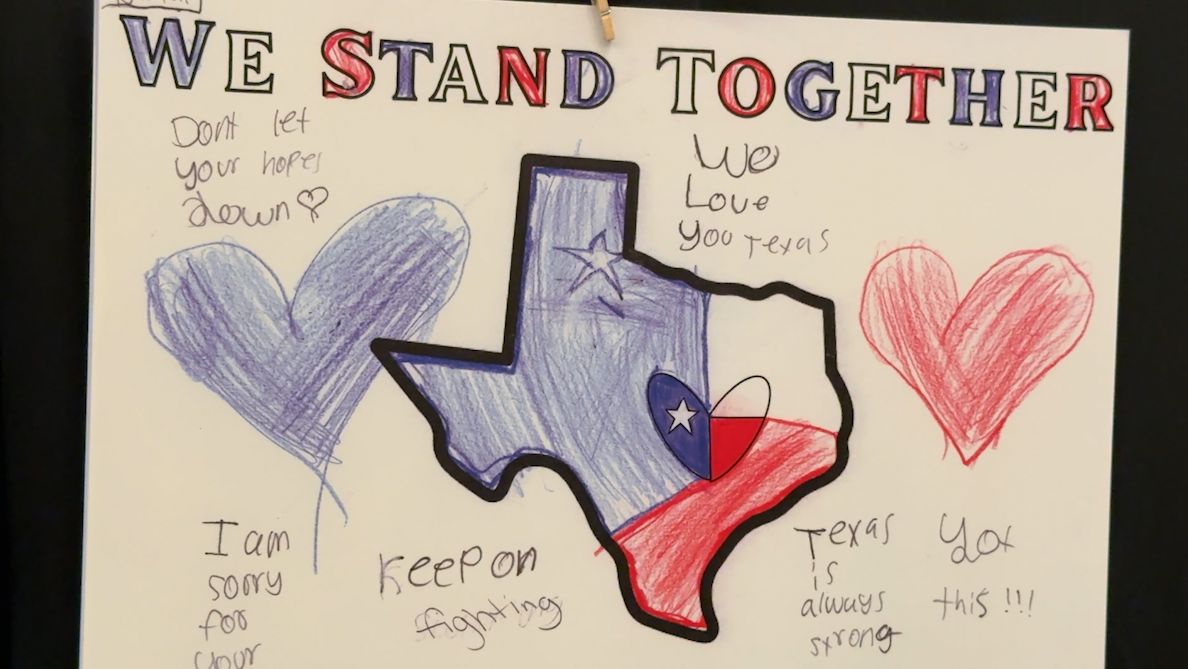 WE STAND TOGETHER
Dont let
your hopes
down
We
Love
you Texas
I am
sorry
for
your
Keep on
fighting
Texas
is
always
strong
Yot
this !!!